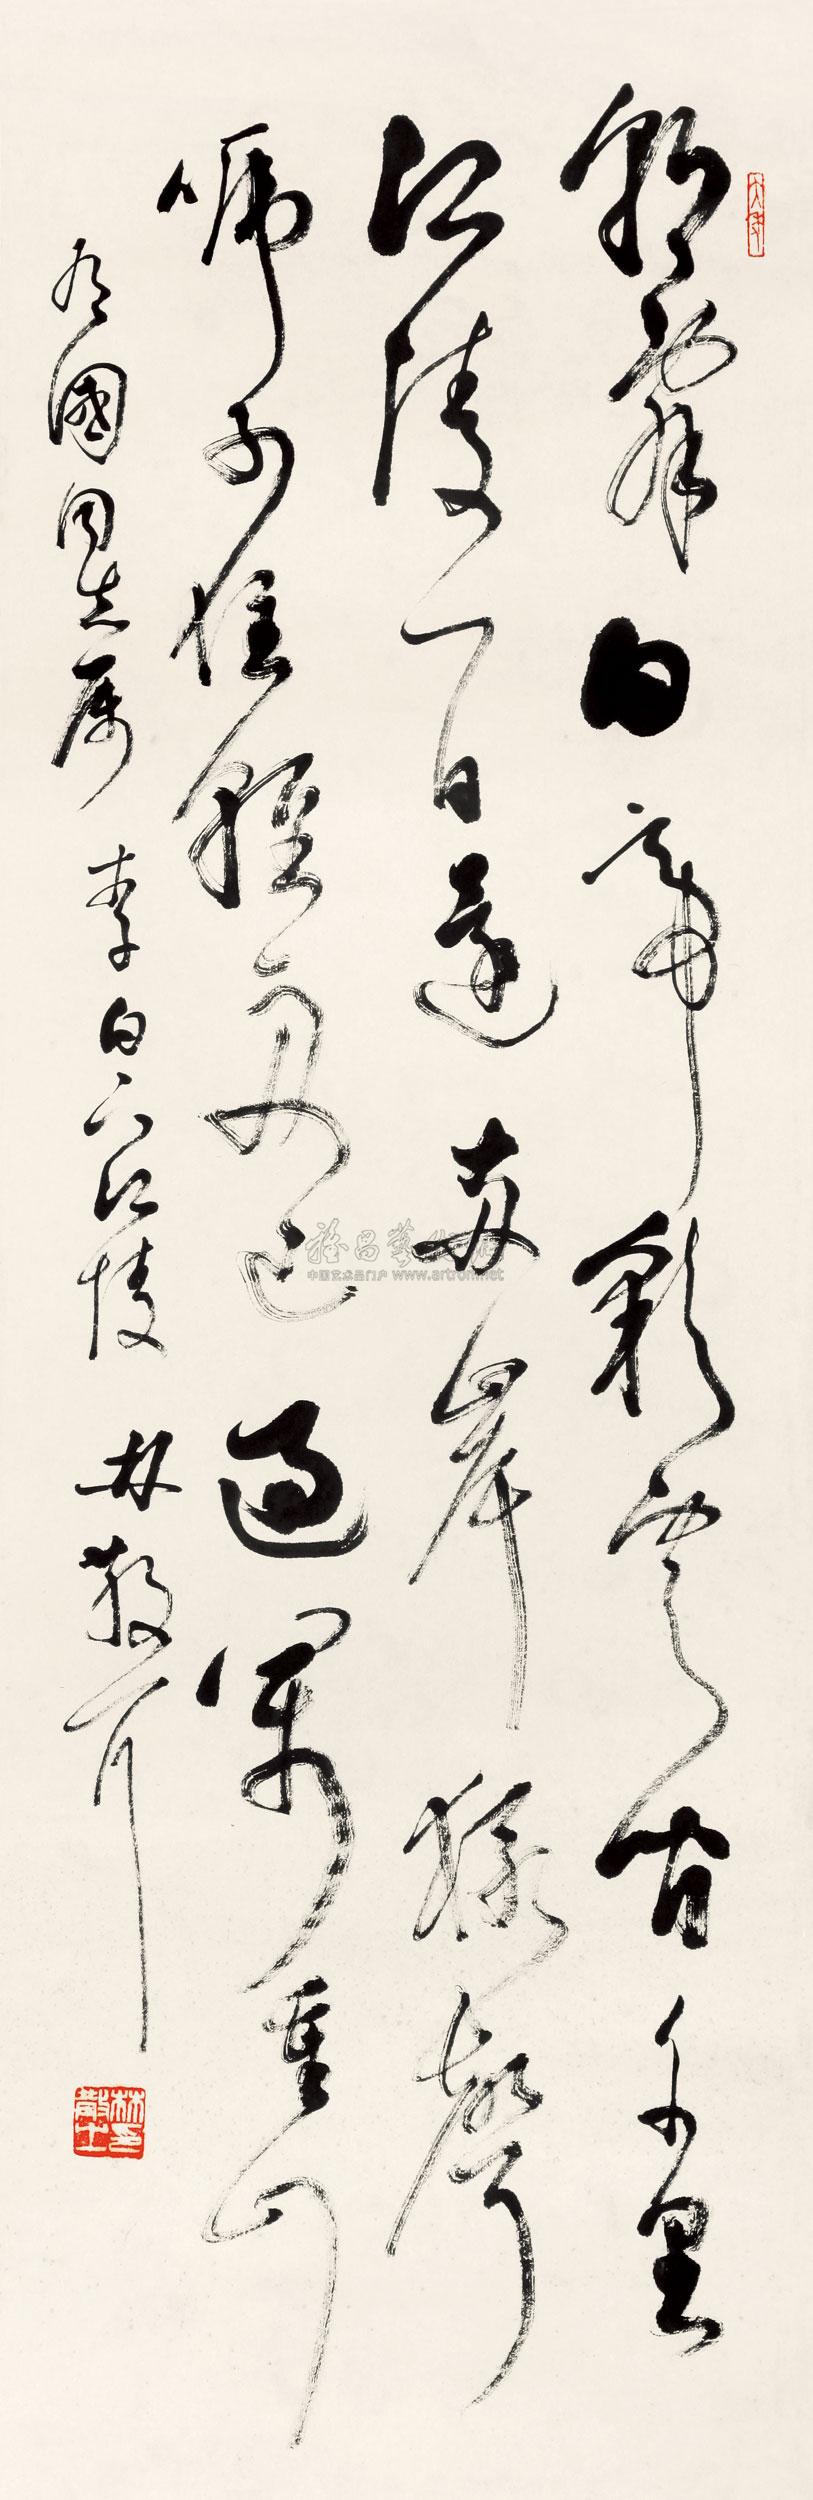 朝辞白帝彩云间千里
江陵一日还两岸猿声
啼不住轻舟已过万重山
国同志属 李白下江陵 林散耳
林散之印
雅昌艺术网
中国艺术品门户 www.artron.net